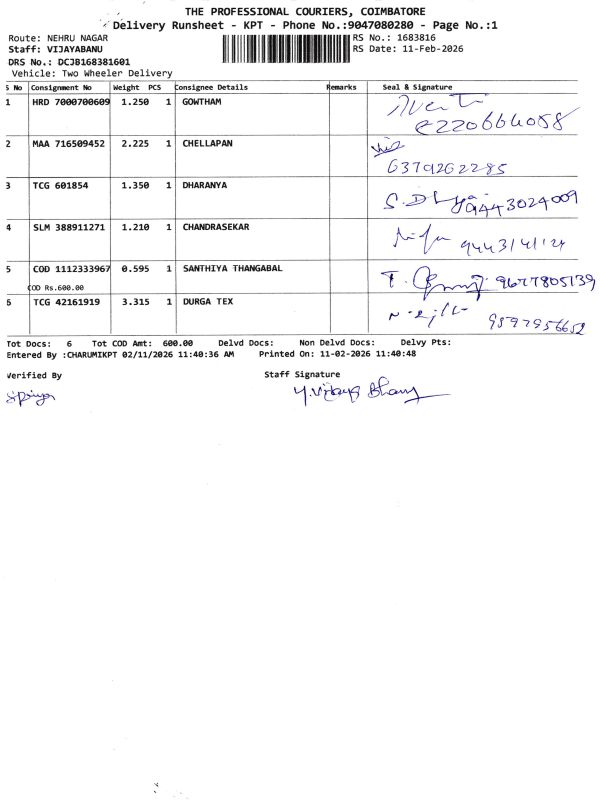 THE PROFESSIONAL COURIERS, COIMBATORE
Delivery Runsheet - KPT - Phone No.:9047080280 - Page No.:1
Route: NEHRU NAGAR RS No.: 1683816
Staff: VIJAYABANU RS Date: 11-Feb-2026
DRS No.: DCJB168381601
Vehicle: Two Wheeler Delivery
S No Consignment No Weight PCS Consignee Details Remarks Seal & Signature
1 HRD 7000700609 1.250 1 GOWTHAM
2 MAA 716509452 2.225 1 CHELLAPAN
6379262285
3 TCG 601854 1.350 1 DHARANYA
9443024009
4 SLM 388911271 1.210 1 CHANDRASEKAR
5 COD 1112333967 0.595 1 SANTHIYA THANGABAL 9677805139
COD Rs.600.00
6 TCG 42161919 3.315 1 DURGA TEX
9597956652
Tot Docs: 6 Tot COD Amt: 600.00 Delvd Docs: Non Delvd Docs: Delvy Pts:
Entered By :CHARUMIKPT 02/11/2026 11:40:36 AM Printed On: 11-02-2026 11:40:48
Verified By Staff Signature